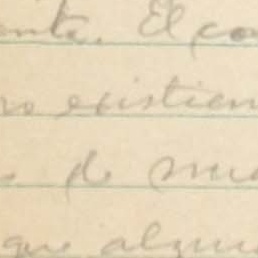 ente. El co
ro existien
s de mu
que algun